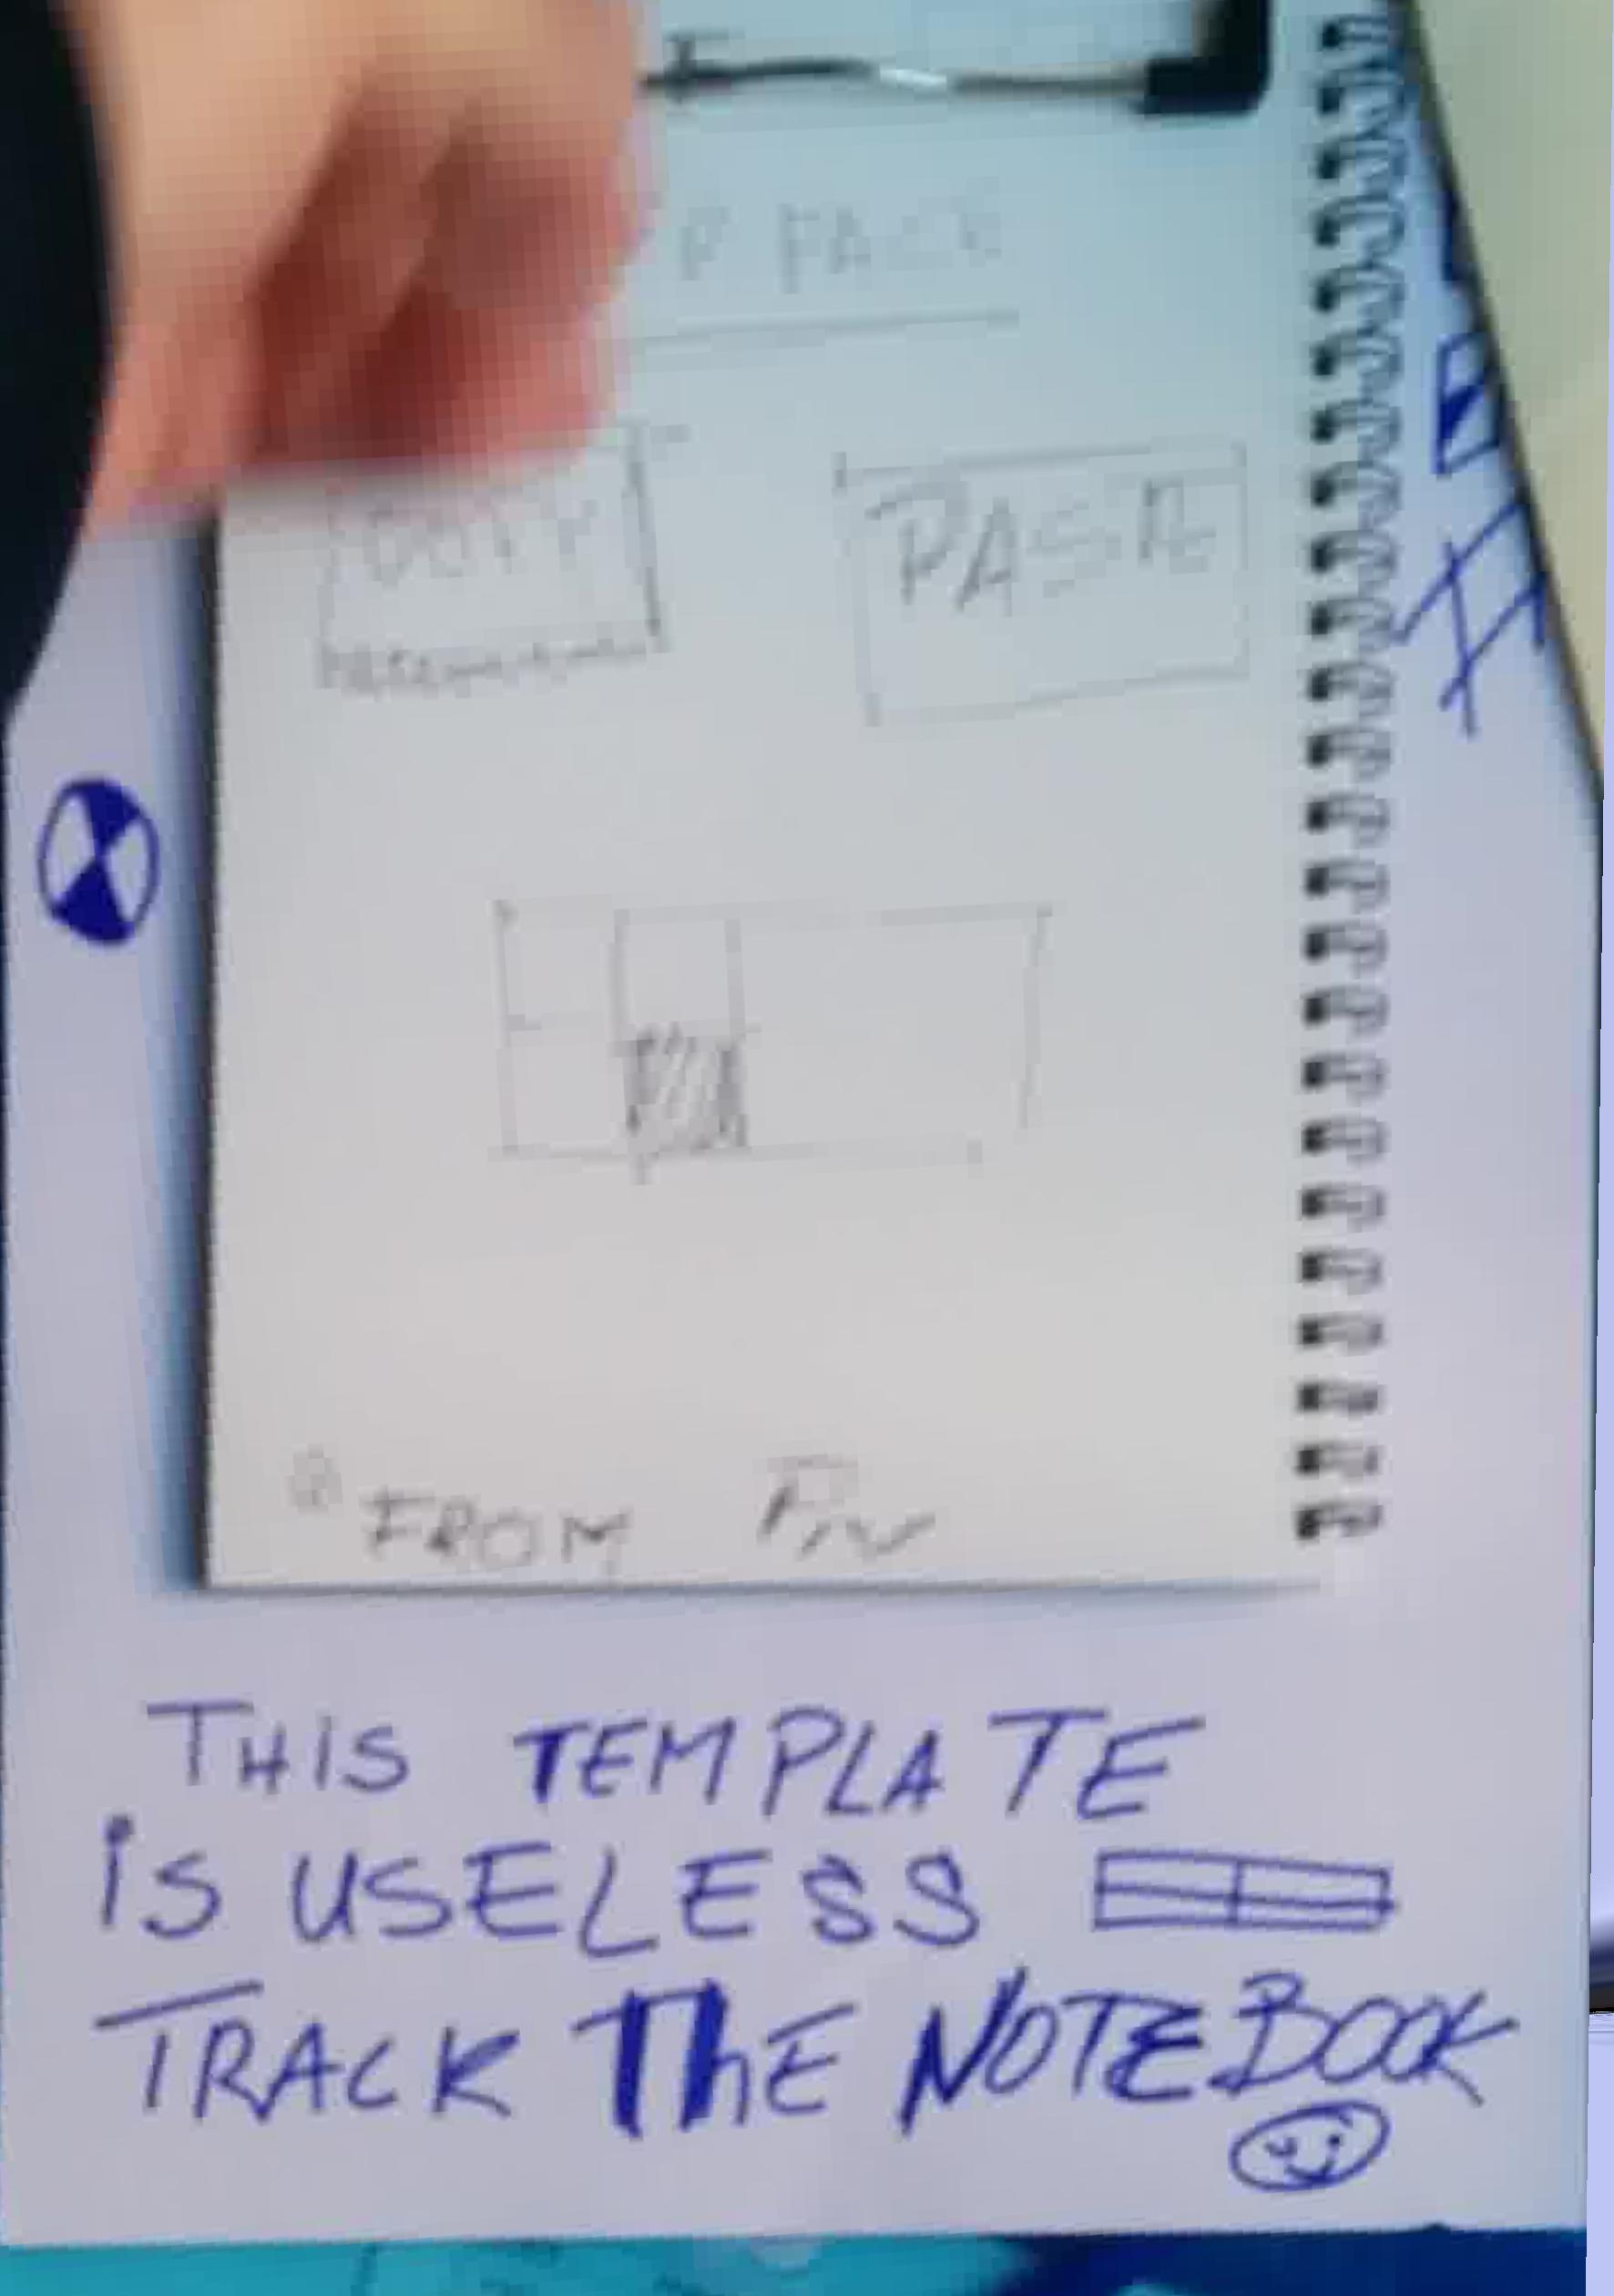 P FACE
COPY PASTE
FROM
THIS TEMPLATE
is USELESS
TRACK ThE NOTEBOOK